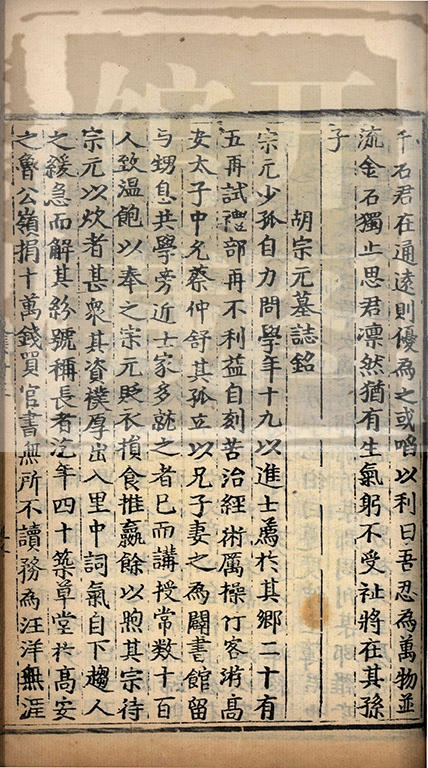 千石君在通遠則優為之或啗以利曰吾忍為萬物並
流金石獨止思君凛然猶有生氣躬不受祉將在其孫
子
胡宗元墓誌銘
宗元少孤自力問學年十九以進士薦於其鄉二十有
五再試禮部再不利益自刻苦治經術厲操行客游高
安太子中允蔡仲舒其孤立以兄子妻之為闢書館留
与甥息共學旁近士家多就之者已而講授常数十百
人致温飽以奉之宗元貶衣損食推羸餘以煦其宗待
宗元以炊者甚衆其資樸厚出入里中詞氣自下趨人
之緩急而解其紛號稱長者汔年四十築草堂於高安
之魯公嶺捐十萬錢買官書無所不讀務為汪洋無涯